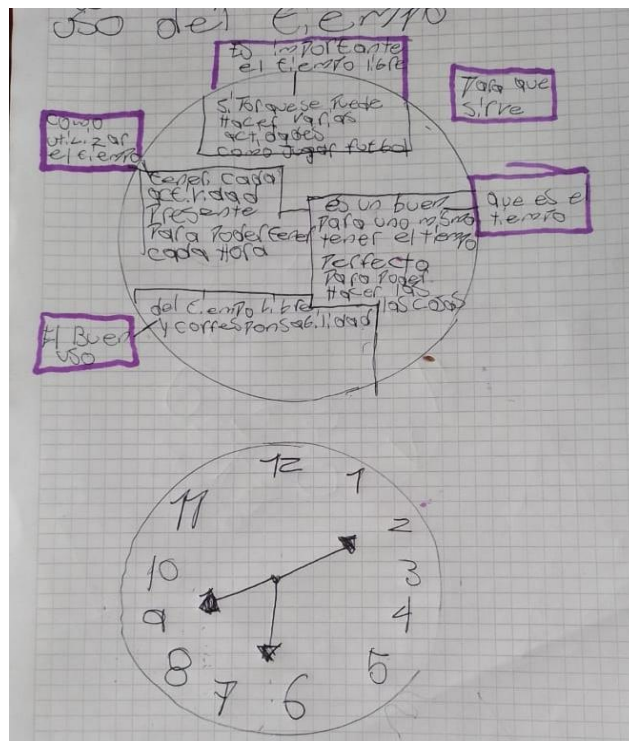 uso del tiempo
Es importante
el tiempo libre
Para que
sirve
como
utilizar
el tiempo
si Porque se Puede
Hacer varias
actidades
como Jugar futbol
tener cada
actiridad
Presente
Para Poder tener
cada Hora
es un buen
Para uno mismo
tener el tiempo
Perfecto
Para Poder
Hacer las
las cosas
que es el
tiempo
del tiempo libre
y corresponsabilidad
el Buen
uso
12
1
2
3
4
5
6
7
8
9
10
11